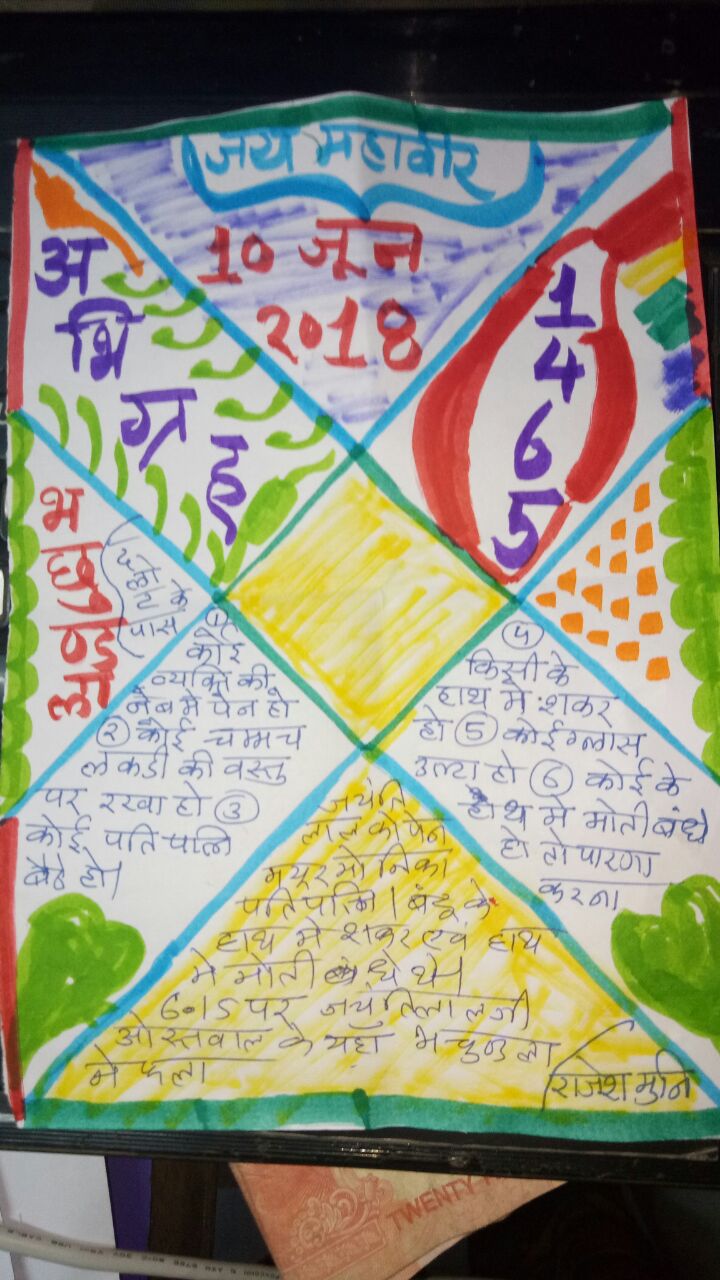 जय महावीर
10 जून
2018
अभिग्रह
1465
भचुण्डला
के
पास
①
कोई
व्यक्ति की
जेब मे पेन हो
② कोई चम्मच
लकडी की वस्तु
पर रखा हो ③
कोई पति पत्नि
बैठे हो।
④
किसी के
हाथ मे शकर
हो ⑤ कोई ग्लास
उल्टा हो ⑥ कोई के
हाथ मे मोती बंधे
हो तो पारणा
करना
जयंति
लाल को पेन
मयूर मोनिका
पति पत्नि। बंटू के
हाथ मे शकर एवं हाथ
मे मोती बंधे थे।
6.15 पर जयंतिलालजी
ओस्तवाल के यहाँ भचुण्डला
मे फला
राजेश मुनि
TWENTY